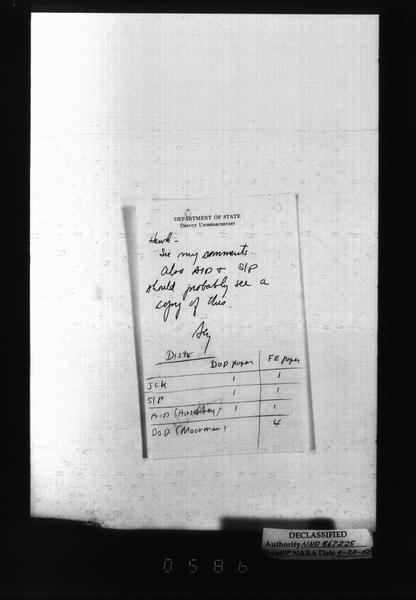 DEPARTMENT OF STATE
DEPUTY UNDERSECRETARY
See my comments.
Also AID + S/P
should probably see a
copy of this.
Distr
DOD paper FE paper
1 1
S/P 1 1
AID 1 1
DOD (Moorman) 4
DECLASSIFIED
Authority NND 867225
NARA Date 6-20-02
0586